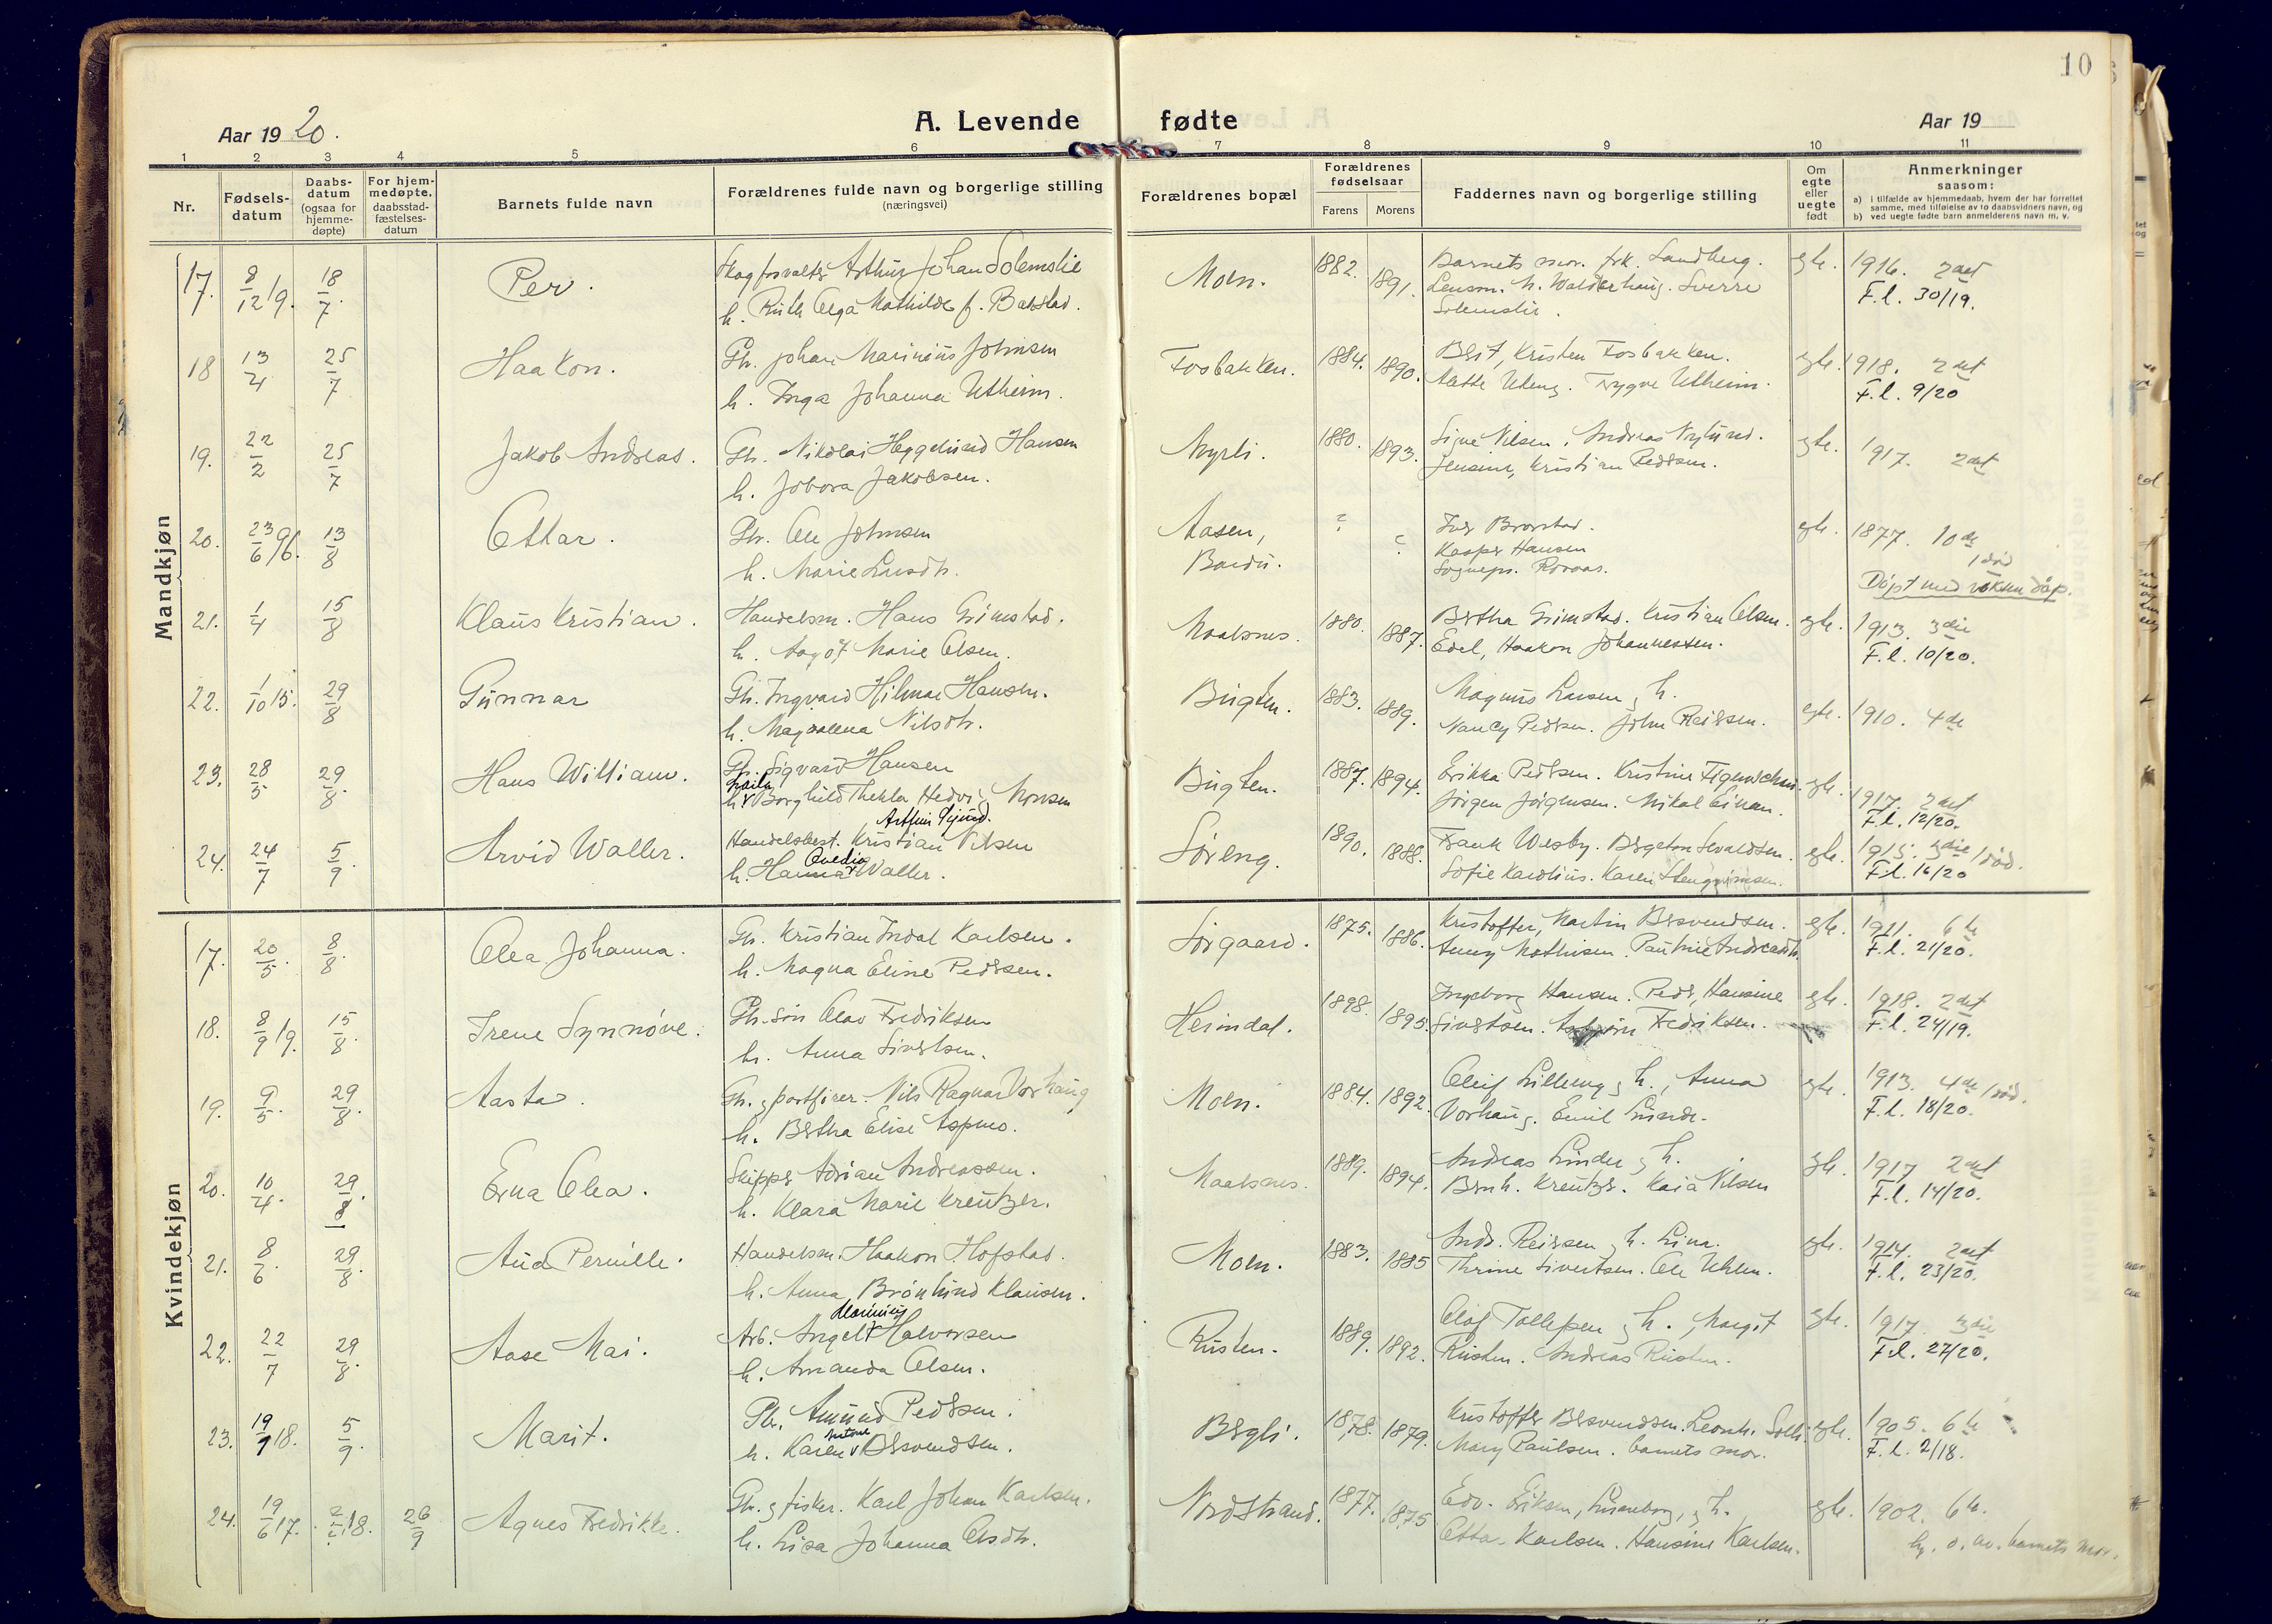 10
Aar 1920.
A. Levende fødte
Aar 19
1 2 3 4 5 6 7 8 9 10 11
Nr.
Fødsels-
datum
Daabs-
datum
(ogsaa for
hjemme-
døpte)
For hjem-
medøpte,
daabsstad-
fæstelses-
datum
Barnets fulde navn
Forældrenes fulde navn og borgerlige stilling
(næringsvei)
Forældrenes bopæl
Forældrenes
fødselsaar
Farens Morens
Faddernes navn og borgerlige stilling
Om
egte
eller
uegte
født
Anmerkninger
saasom:
a) i tilfælde av hjemmedaab, hvem der har forrettet
samme, med tilføielse av to daabsvidners navn, og
b) ved uegte fødte barn anmelderens navn m. v.
Mandkjøn
17. 8/12 19. 18/7. Per. Skogforvalter Arthur Johan Solemslie Moen. 1882. Barnets mor. frk. Sandberg. egte. 1916. 2det
h. Ruth Olga Mathilde f. Bakstad. 1891. Lensm. M. Walderhaug. Sverre F.l. 30/19.
Solemslie.
18 13/4 25/7 Haakon. Gbr. Johan Marinius Johnsen Fosbakken. 1884. Berit, Kristen Fosbakken. egte. 1918. 2det
h. Inga Johanna Utheim. 1890. Trygve Utheim. F.l. 9/20
19. 22/2 25/7 Jakob Andreas. Gbr. Nikolai Heggelund Hansen Myrli. 1880. Signe Nilsen, Andreas Nylund. egte. 1917. 2det
h. Jakobsen. 1893. Jensine, Kristian Pedersen.
20. 23/6 96. 13/8 Ottar. Gbr. Ole Johnsen Aasen, ? egte. 1877. 10de
h. Marie Larsdtr. Bardu. ? Kasper Hansen 1 död
Sognepr. Döpt med voksendåp.
21. 1/4 15/8 Klaus Kristian. Handelsm. Hans Grimstad. Maalsnes. 1880. Bertha Grimstad. Kristian Olsen. egte. 1913. 3die
h. Aagot Marie Olsen. 1887. Edel, Haakon Johannessen. F.l. 10/20.
22. 1/10 15. 29/8 Gunnar Gbr. Ingvard Hilmar Hansen. Bugten. 1883. Magnus Larsen og h. egte. 1910. 4de
h. Magdalena Nilsdtr. 1889. Nancy Pedersen. John Reiersen.
23. 28/5 29/8. Hans William. Gbr. Sigvard Hansen Bugten. 1887. 1894. Erikka Pedersen. Kristine egte. 1917. 2det
h. Laila Borghild Thekla Hedvig Monsen Jörgen Jörgensen. Mikal Einan. F.l. 12/20.
24. 24/7 5/9 Arvid Waller. Handelsbest. Kristian Arthur Nilsen Söreng. 1890. Frank Wesby. Bergeton Sevaldsen. egte. 1915. 3die 1 död.
h. Hanna Ovedia Waller. 1888. Sofie Karolius. Karen F.l. 16/20
Kvindekjøn
17. 20/5. 8/8. Olea Johanna. Gbr. Kristian Indal Karlsen. Sörgaard. 1875. Kristoffer, Martin Bersvendsen. egte. 1911. 6te
h. Magna Eline Pedersen. 1886. Anny Mathisen. Pauline Andreasdtr. F.l. 21/20.
18. 8/9 19. 15/8. Irene Synnöve. Gbr. sön Olav Fredriksen Heimdal. 1898. Ingeborg Hansen. Peder, Hansine egte. 1918. 2det
h. Anna Sivertsen. 1895. Sivertsen. Asbjörn Fredriksen. F.l. 24/19.
19. 9/5. 29/8. Aasta. Gbr. og postfører. Nils Ragnar Vorhaug Moen. 1884. 1892. Oleif Lilleng og h., Anna egte. 1913. 4de 1 död.
h. Bertha Elise Aspmo. Vorhaug. Emil F.l. 18/20.
20. 10/4. 29/8. Erna Olea. Skipper Adrian Andreassen. Maalsnes. 1889. Andreas Linder og h. egte. 1917 2det
h. Klara Marie Kreutzer. 1894. Bernh. Kreutzer. Kaia Nilsen F.l. 14/20.
21. 8/6. 29/8. Aud Pernille. Handelsm. Haakon Hofstad. Moen. 1883. And. Reiersen og h. Lina. egte. 1914. 2det
h. Anna Brönlund Klausen. 1885 Thrine Sivertsen. Ole Uhlen. F.l. 23/20.
22. 22/7 29/8. Aase Mai. Arb. Angelt Halvorsen Rusten. 1889. Olaf Tollefsen og h., Margit egte. 1917 3die
h. Amanda Olsen. 1892. Rusten. Andreas Rusten. F.l. 27/20.
23. 19/9 18. 5/9. Marit. Gbr. Amund Pedersen. Bergli. 1878. Kristoffer Bersvendsen. Leonh. egte. 1905. 6te
h. Karen Antone Bersvendsen. 1879. Mary Paulsen. barnets mor. F.l. 2/18.
24. 19/6 17. 18. 26/9 Agnes Fredrikke. Gbr. og fisker. Karl Johan Karlsen. Nordstrand. 1877. Edv. Eriksen, og h. egte. 1902. 6te.
h. Lisa Johanna Olsdtr. 1875 Karlsen. Hansine Karlsen. hj. d. av. barnets mor.